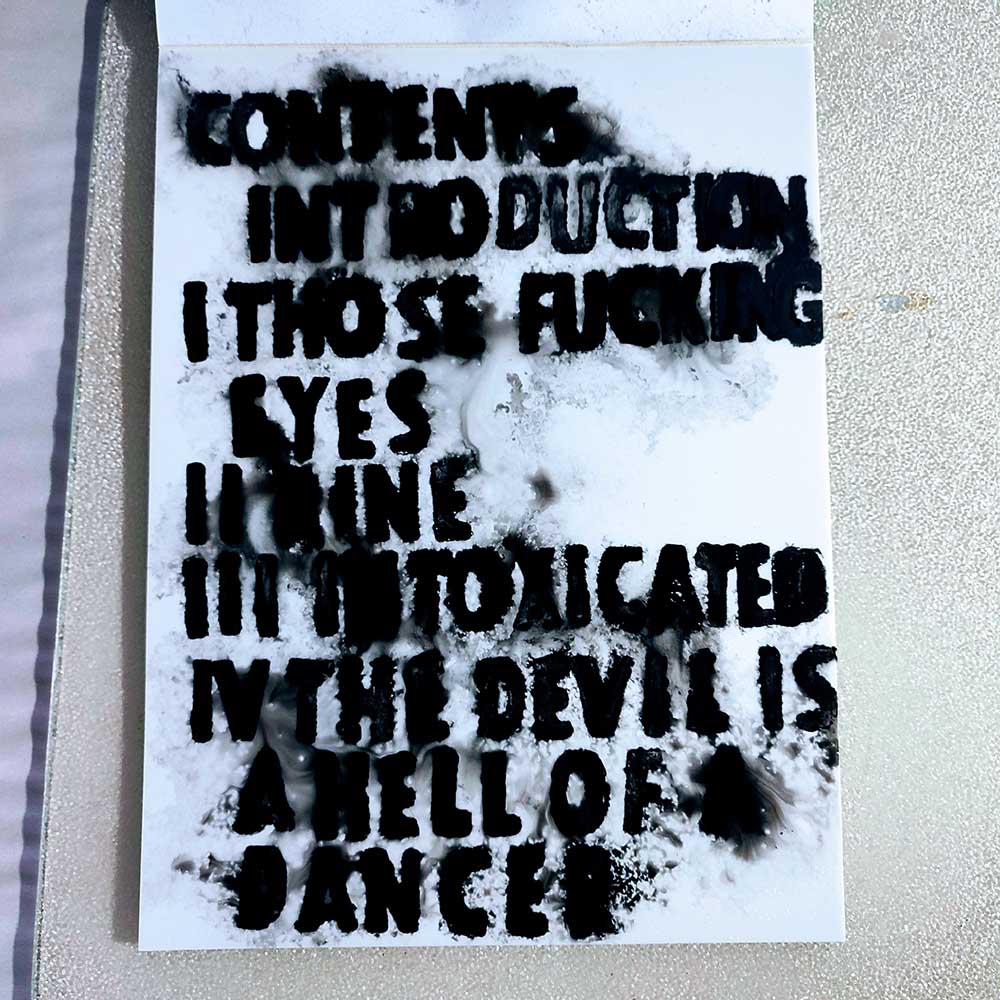 CONTENTS
INTRODUCTION
I THOSE FUCKING
EYES
II
III INTOXICATED
IV THE DEVIL IS
A HELL OF A
DANCER